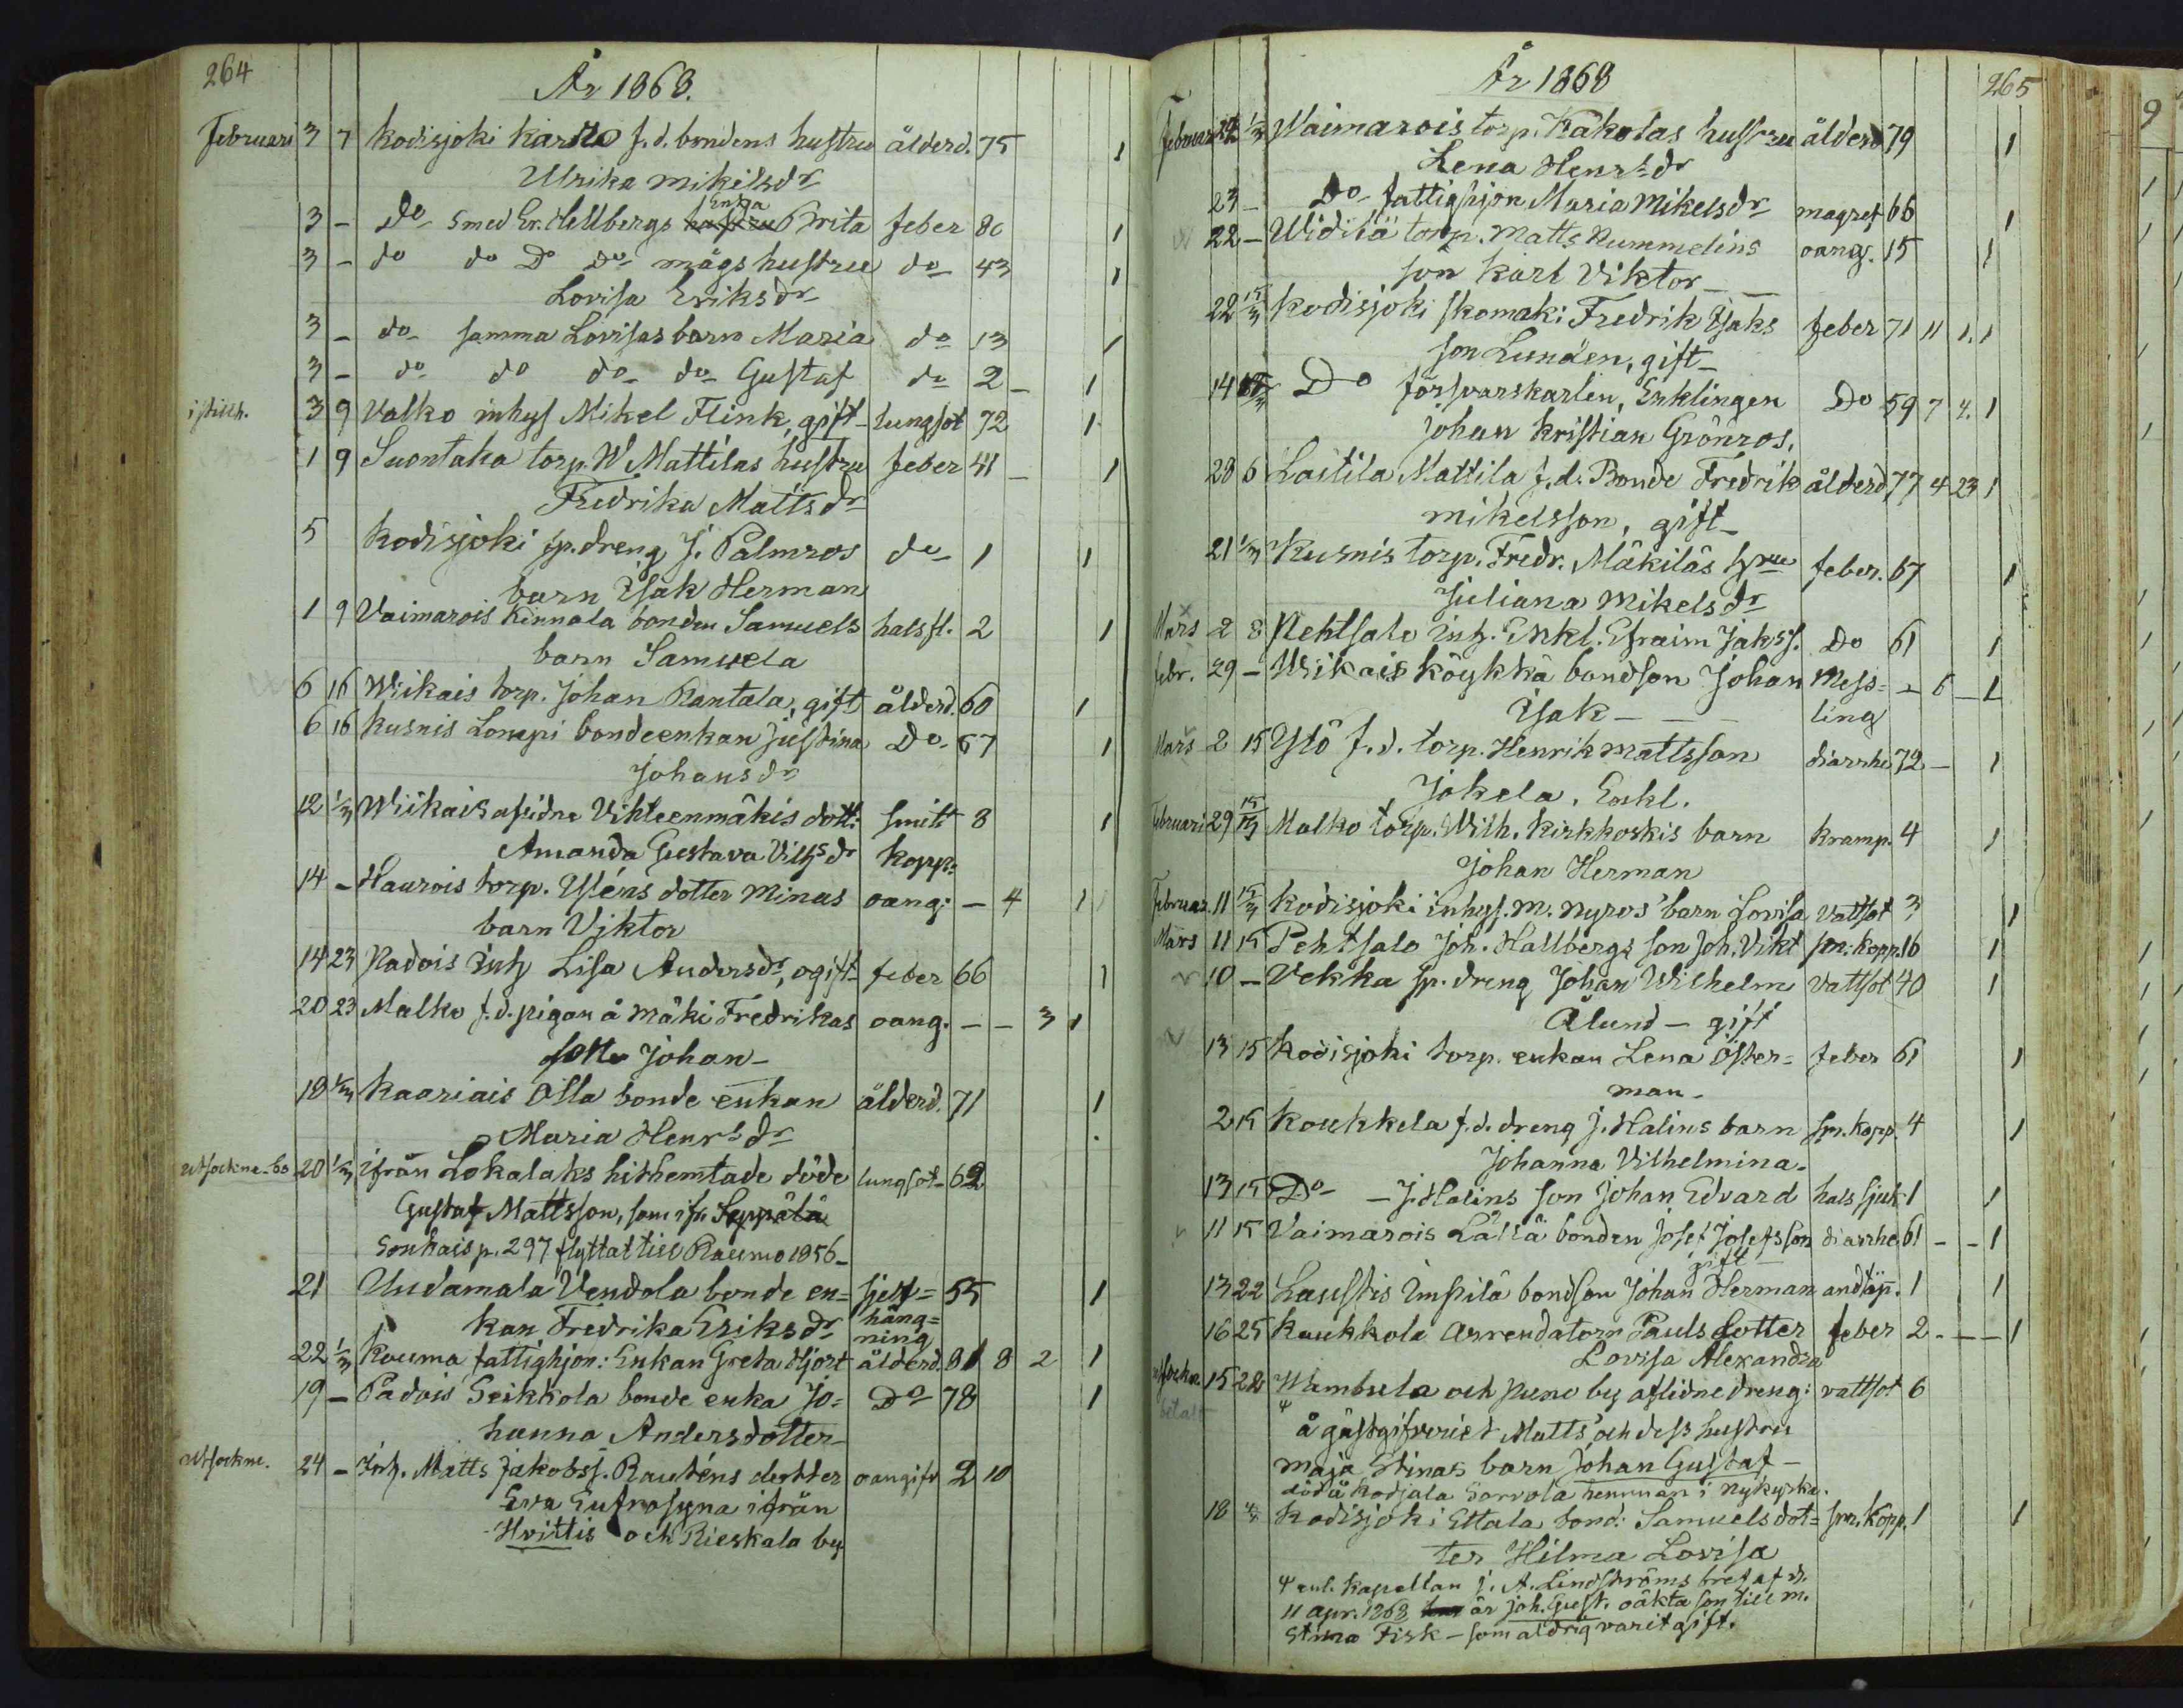 264
År 1868.
Februari 3 7 Kodisjoki Karsto f.d. bondens hustru ålderd. 75 1
Ulrika Mikelsdr
3 - do Smed Er. Hellbergs Enka Brita feber 80 1
3 - do do Do Do mågs hustru do 43 1
Lovisa Eriksdr
3 - do samma Lovisas barn Maria do 13 1
3 - do do do do Gustaf do 2 - 1
3 9 Valko inhys Mikel Flink, gift lungsot 72 1
1 9 Suontaka torp. W Mattilas hustru feber 41 - 1
Fredrika Mattsdr
5 Kodisjoki sp.dreng J. Palmros do 1 1
barn Isak Herman
1 9 Vaimarois Kinnala bonden Samuels halsfl. 2 1
barn Samuela
6 16 Wiikais torp. Johan Rantala, gift ålderd. 60 1
6 16 Kusnis Lompi bondeenkan Justina Do 67 1
Johansdr
12 1/3 Wiikais afsidne Vihteenmäkis dott: smitt 8 1
Amanda Gustava Vilhsdr kopp:
14 - Haurois torp. Uséns dotter Minas oang: - 4 1
barn Viktor
14 23 Padois Inh Lisa Andersdr, ogift feber 66 1
20 23 Malko f.d. pigan å Mäki Fredrikas oang. - - 3 1
son Johan -
18 1/3 Kaariais Olla bonde enkan ålderd. 71 1
Maria Henrsdr
utsockne-bo 20 1/3 ifrån Lokalaks hithemtade döde lungsot 62
Gustaf Mattsson, som ifr Seppälä
Sonkais p. 297 flyttat till Raumo 1856 -
21 Undamala Vendola bonde en= sjelf= 55 1
kan Fredrika Eriksdr häng=
ning
22 1/3 Kouma fattighjon: Enkan Greta Hjort ålderd. 81 8 2 1
19 - Padois Seikkola bonde enka Jo= Do 78 1
hanna Andersdotter
utsockne. 24 - Inh. Matts Jakobss. Rauténs dotter oangifv 2 10
Eva Eufrosyna ifrån
Hvittis och Rieskala by
År 1868
265
Februari 24 1/3 Waimarois torp. Kakolas hustru ålderd 79 1
Lena Henrsdr
23 - Do fattighjon Maria Mikelsdr magref 66 1
22 - Widilä torp. Matts Rummelins oang. 15 1
son Karl Viktor
22 15/3 Kodisjoki skomak: Fredrik Isaks feber 71 11 1. 1
son Lundén, gift
14 15/3 Do försvarskarlen, Enklingen Do 59 7 4. 1
Johan Kristian Grönros.
28 6 Laitila Mattila f.d. Bonde Fredrik ålderd 77 4 23 1
Mikelsson, gift
21 1/3 Kusnis torp. Fredr. Mäkiläs hru feber. 67 1
Juliana Mikelsdr
Mars 2 8 Pehtsalo Inh. Enkl. Efraim Jakss. Do 61 1
Febr. 29 - Wiikais Köykkä bondson Johan Mess= - 6 - 1
Isak - - - ling
Mars 2 15 Ytö f.d. torp. Henrik Mattsson diarrhe 72 - 1
Jokela. Enkl.
Februari 29 15/3 Malko torp. Wilh. Kirkkoskis barn kramp. 4 1
Johan Herman
Februar. 11 15/3 Kodisjoki inhys. M. Nyros' barn Lovisa vattsot 3 1
Mars 11 15 Pehtsalo Joh. Hallbergs son Joh. Vikt sm. kopp. 16 1
10 - Vekka sp. dreng Johan Wilhelm vattsot 40 1
Ålund - gift
13 15 Kodisjoki torp. enkan Lena Öster= feber 61 1
man.
2 15 Koukkela f.d. dreng J. Halins barn sm. kopp. 4 1
Johanna Vilhelmina.
13 15 Do - J. Halins son Johan Edvard hals sjuk 1 1
11 15 Vaimarois Lällä bonden Josef Josefsson diarrhe 61 - - 1
gift
13 22 Laustis Impilä bondson Johan Herman andtäp. 1 1
16 25 Kaukkola arrendatorn Pauls dotter feber 2 - - - 1
Lovisa Alexandra
utsockn 15 22 Wambula och Puno by aflidne dreng: vattsot 6
betalt
å gästgifveriet Matts' och dess hustru
Maja Stinas barn Johan Gustaf -
död å Kodjala Sorvola hemman i Nykyrko.
18 Kodisjoki Ettala bond: Samuels dot= sm. kopp. 1 1
ter Hilma Lovisa
Ψ enl. Kapellan J. A. Lindströms bref af d.
11 apr. 1868 är Joh. Gust. oäkta son till M.
Stina Fisk - som aldrig varit gift.